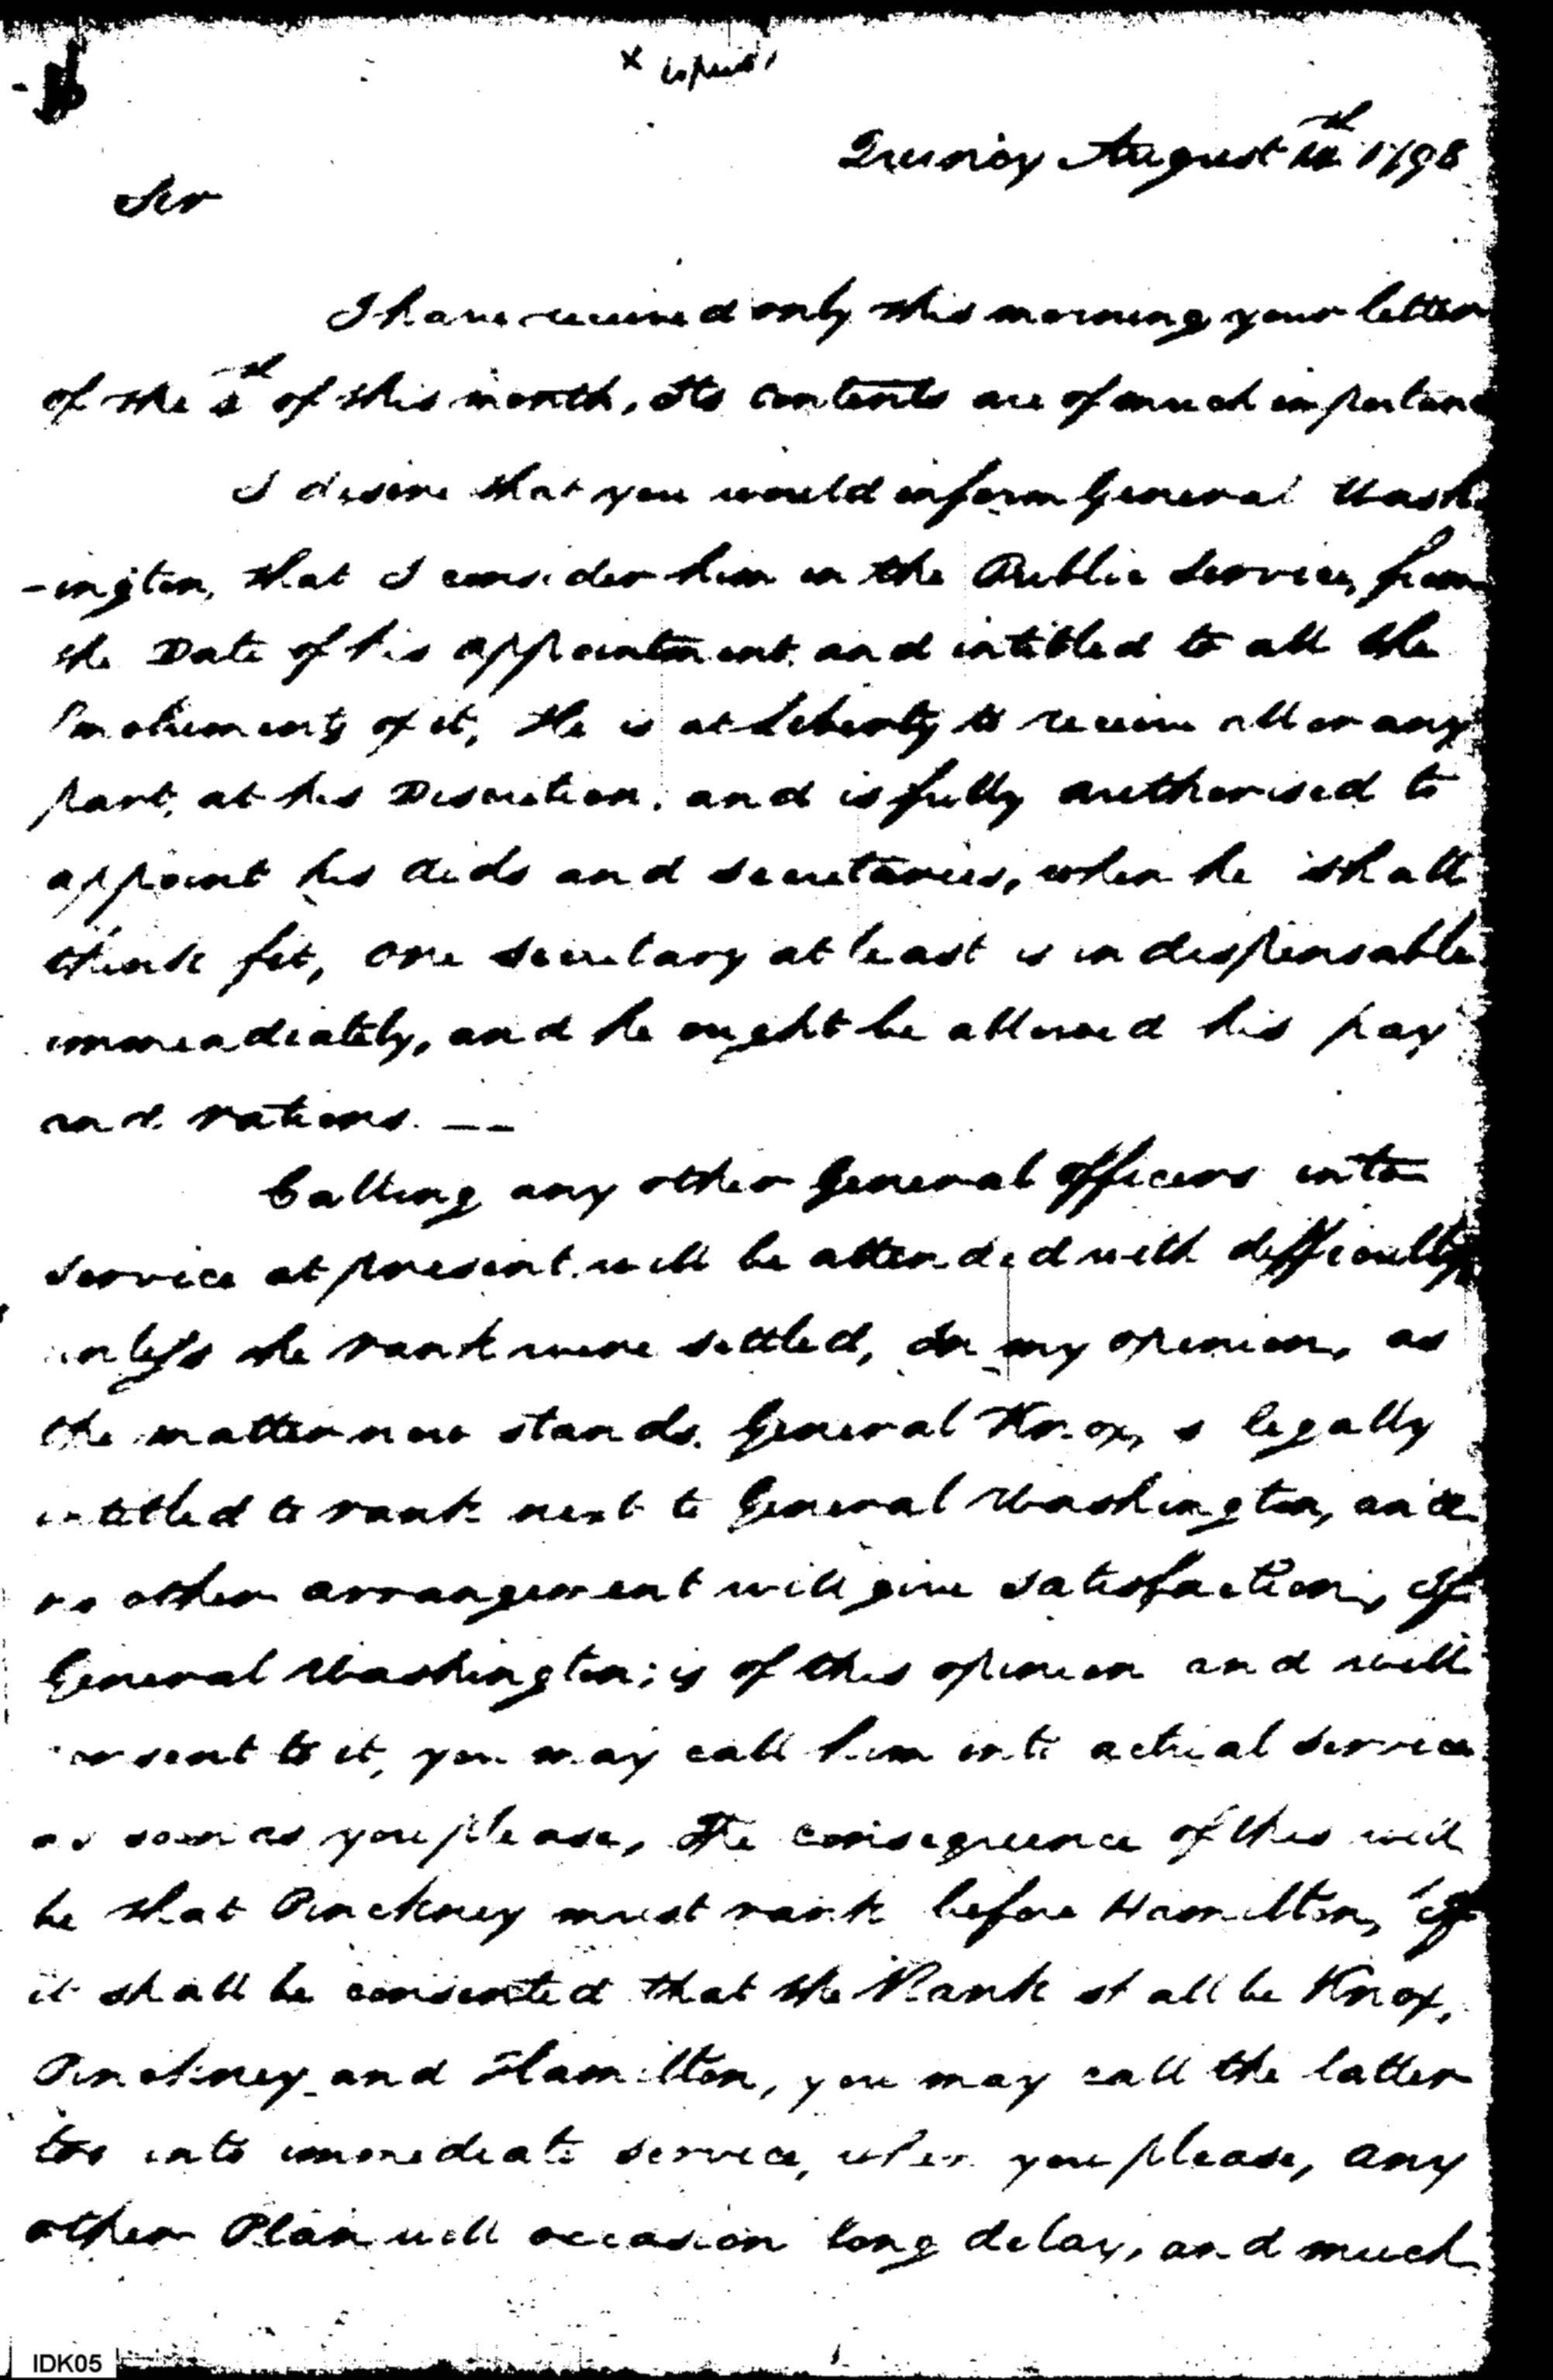 x copied
Quincy August 14th 1798
Sir
I have received only this morning your letter
of the th of this month, Its contents are of much importance
I desire that you would inform General Wash
-ington, that I consider him in the Public Service, from
the Date of his appointment and intitled to all the
Emoluments of it, He is at Liberty to receive all or any
part, at his Discretion, and is fully authorised to
appoint his Aids and Secretaries, when he shall
think fit, One Secretary at least is indispensable
immeadiately, and he ought be allowed his pay
and rations. --
Calling any other General officers into
Service at present will be attended with difficulty
unless the rank were settled, In my opinion, as
the matter now stands. General Knox, is legally
intitled to rank next to General Washington, and
no other arrangement will give satisfaction, If
General Washington; is of this opinion and will
consent to it, you may call him into actual Service
as soon as you please, The consequence of this will
be that Pinckney must rank before Hamilton, If
it shall be consented that the Rank shall be Knox,
Pinckney and Hamilton, you may call the latter
too into immediate service, when you please, any
other Plan will occasion long delay, and much
IDK05